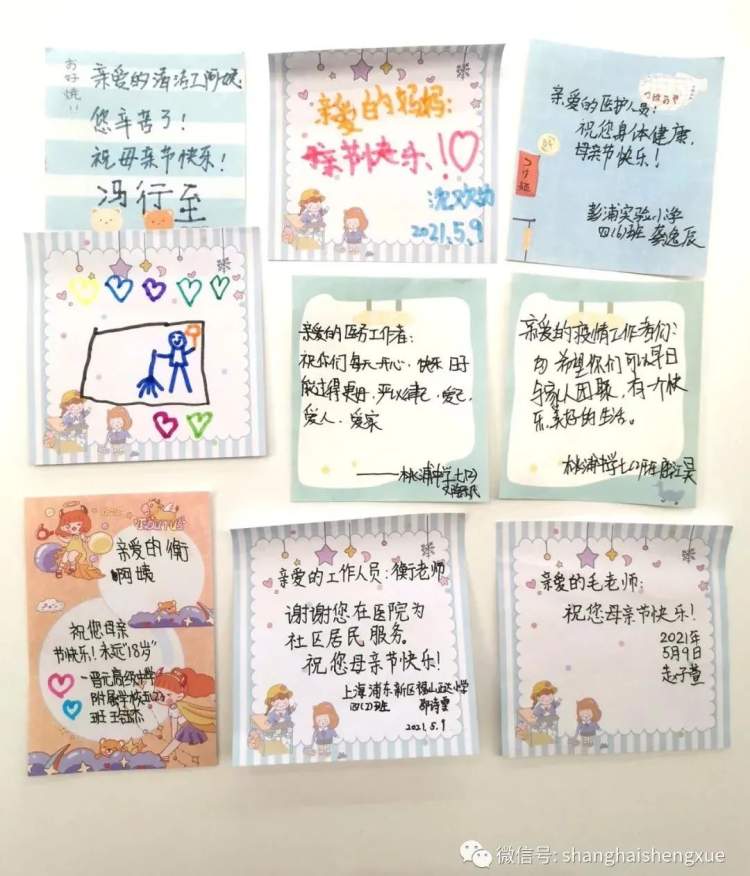 お好焼
亲爱的清洁工阿姨
您辛苦了!
祝母亲节快乐!
冯行至
亲爱的妈妈:
母亲节快乐!
2021.5.9
亲爱的医护人员:
祝您身体健康,
母亲节快乐!
彭浦实验小学
四(6)班 龚逸辰
亲爱的医务工作者:
祝你们每天开心,快乐 日子
能过得更好,严以律己,爱己,
爱人,爱家
——桃浦中学七(2)
亲爱的疫情工作者们:
希望你们可以早日
与家人团聚,有一个快
乐,美好的生活。
桃浦中学七(1)班
亲爱的衡
啊姨
祝您母亲
节快乐!永远"18岁"
晋元高级中学
附属学校
亲爱的工作人员:衡老师
谢谢您在医院为
社区居民服务。
祝您母亲节快乐!
上海浦东新区福山正达小学
四(1)班 邵诗雯
2021.5.9
亲爱的毛老师:
祝您母亲节快乐!
2021年
5月9日
赵子萱
微信号: shanghaishengxue